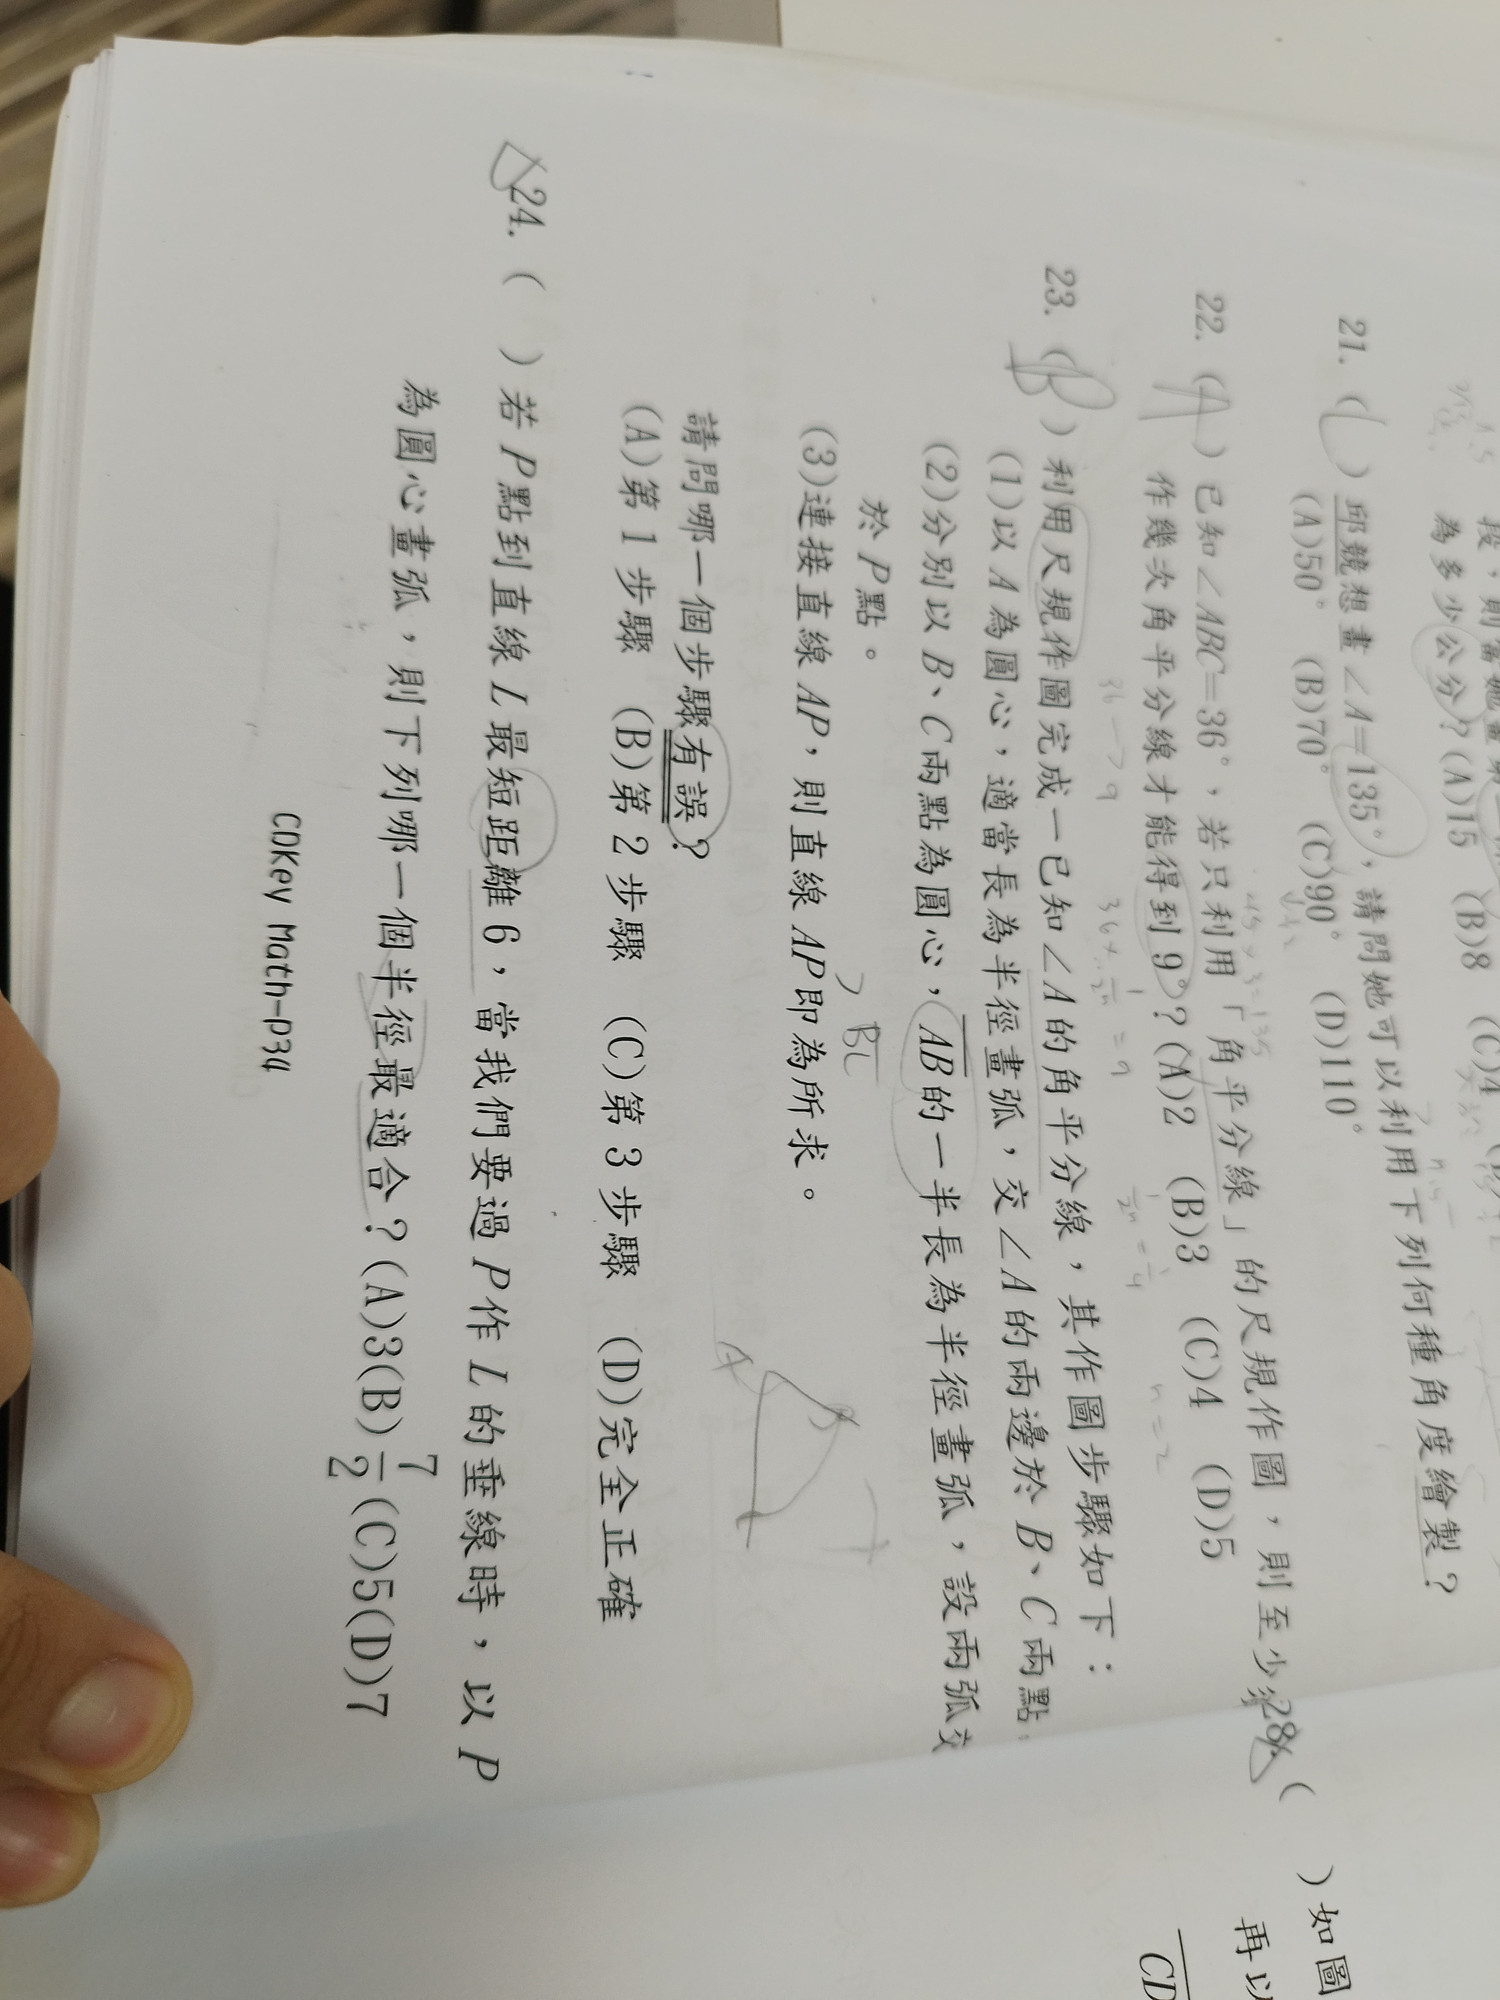 投，則當她畫第
為多少公分？(A)15 (B)8 (C)4
21. ( ) 邱競想畫∠A=135°，請問她可以利用下列何種角度繪製？
(A)50° (B)70° (C)90° (D)110°
22. (A) 已知∠ABC=36°，若只利用「角平分線」的尺規作圖，則至少須
作幾次角平分線才能得到9°？(A)2 (B)3 (C)4 (D)5
36→9
36×1/2n=9
1/2n=1/4
n=2
23. (B) 利用尺規作圖完成一已知∠A的角平分線，其作圖步驟如下：
(1)以A為圓心，適當長為半徑畫弧，交∠A的兩邊於B、C兩點
(2)分別以B、C兩點為圓心，AB的一半長為半徑畫弧，設兩弧交
於P點。
BC
(3)連接直線AP，則直線AP即為所求。
請問哪一個步驟有誤？
(A)第1步驟 (B)第2步驟 (C)第3步驟 (D)完全正確
A
B
24. ( ) 若P點到直線L最短距離6，當我們要過P作L的垂線時，以P
為圓心畫弧，則下列哪一個半徑最適合？(A)3(B)7/2(C)5(D)7
CDKey Math-p34
28. ( ) 如圖
再以
CD